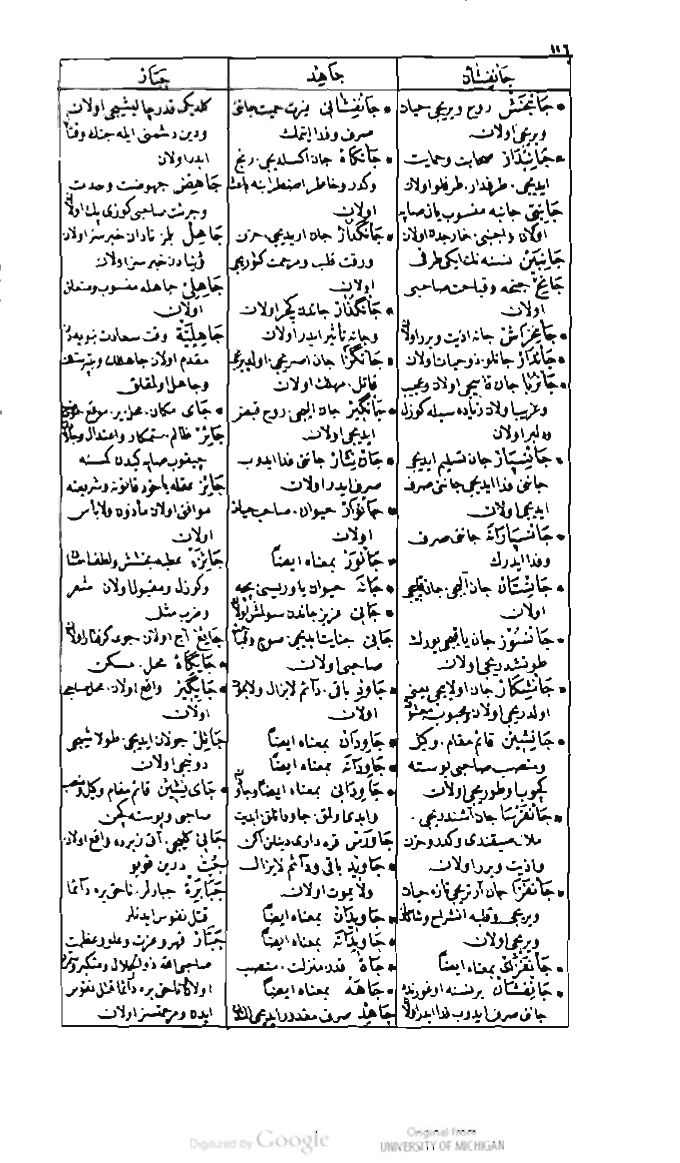 ١١٦
جانفشان
جاهد
جبار
• جَانْبَخْشْ روح ويريجى حيات
ويريجى اولان
• جَانِبْدَارْ صحابت وحمايت
ايديجى. طرفدار. طرفلو اولان
جَانِبِىّ جانبه منسوب يان صاپه
اولان واجنبى. خارجده اولان
جَانِبَيْنْ نسنه نك ايكى طرفى
جَانِحْ جنحه وقباحت صاحبى
اولان
• جَانْخِرَاشْ جانه اذيت ويرر اولان
• جَانْدَارْ جانلو. ذوحيات اولان
• جَانْرُبَا جان قاپيجى اولان وعجيب
وغريب اولان زياده سيله كوزل
ودلبر اولان
• جَانْسِپَارْ جان تسليم ايديجى
جاننى فدا ايديجى جاننى صرف
ايديجى اولان
• جَانْسِپَارَانَه جاننى صرف
وفدا ايدرك
• جَانْسِتَانْ جان آليجى. جان قاپيجى
اولان
• جَانْسُوزْ جان ياقيجى يورك
طوتشديريجى اولان
• جَانْشِكَارْ جان اولايجى يعنى
اولديريجى اولان محبوب معشوق
• جَانِشِينْ قائم مقام. وكيل
ومنصب صاحبى پوسته
كچوب اوطوريجى اولان
• جَانْفَرْسَا جان آشنديريجى.
ملالت صيقندى وكدر وحزن
واذيت ويرر اولان
• جَانْفَزَا جان آرتريجى تازه حيات
ويريجى وقلبه انشراح وشادلق
ويريجى اولان
• جَانْفَزَاىْ بمعناه ايضاً
• جَانْفِشَانْ برنسنه اوغورنده
جاننى صرف ايدوب فدا ايدر اولان
• جَانْفِشَانِى يزيت حميت جاننى
صرف وفدا ايتمك
• جَانْكَاهْ جان اكسلديجى. رنج
وكدر وخاطر اضطرابنه باعث
اولان
• جَانْكُدَازْ جان اريديجى. حزن
ورقت قلب ومرحمت كتوريجى
اولان
• جَانْكُذَارْ جاندن كچر اولان
وجانه تأثير ايدر اولان
• جَانْكَزَا جان اصيريجى. اولديريجى
قاتل. مهلك اولان
• جَانْكِيرْ جان اليجى. روح قبض
ايديجى اولان
• جَانْ نِثَارْ جاننى فدا ايدوب
صرف ايدر اولان
• جَانْوَارْ حيوان. صاحب حيات
اولان
• جَانْوَرْ بمعناه ايضاً
• جَانَه حيوان ياوريسى بچه
• جَانِى عزيز جاندن سولمش اولان
جَانِى جنايت ايديجى. صوچ وقباحت
صاحبى اولان
• جَاوِدْ باقى. دائم لايزال ولايموت
اولان
• جَاوِدَانْ بمعناه ايضاً
• جَاوِدَانَه بمعناه ايضاً
• جَاوِدَانِى بمعناه ايضاً وباقى
وابدى ولق. جاودانلق ابديت
جَاوَرْسْ قره دارى دينلن اكن
• جَاوِيدْ باقى ودائم لايزال
ولايموت اولان
• جَاوِيدَانْ بمعناه ايضاً
• جَاوِيدَانَه بمعناه ايضاً
• جَاهْ قدر منزلت. منصب
• جَاهَه بمعناه ايضاً
جَاهِدْ صرف مقدور ايديجى. الندن
كلديكى قدر چاليشيجى اولان
ودين دشمنى ايله جنك وقتال
ايدر اولان
جَاهِضْ جهوضت وحدت
وجرئت صاحبى كوزى پك اولان
جَاهِلْ بلمز نادان خبرسز اولان
دنيادن خبرسز اولان
جَاهِلِىّ جاهله منسوب ومتعلق
اولان
جَاهِلِيَّةْ وقت سعادت نبويدن
مقدم اولان جاهللك وبت پرستلك
وجاهل اولمقلق
• جَاىْ مكان. محل. ير. موقع. موضع
جَائِرْ ظالم. ستمكار واعتدال وجادهدن
چيقوب صاپه كيدن كمسنه
جَائِزْ عقله ياخود قانونه وشريعته
موافق اولان مأذون ولابأس
اولان
جَائِزَه عطيه بخشش ولطف احسان
وكوزل ومقبول اولان شعر
وضرب مثل
جَايِعْ آج اولان. جوعه كرفتار اولان
• جَايْكَاهْ محل. مسكن
• جَايْكِيرْ واقع اولان. محل صاحبى
اولان
جَائِلْ جولان ايديجى. طولاشيجى
دونيجى اولان
• جَاىْ نِشِينْ قائم مقام وكيل ومنصب
صاحبى وپوسته كچن
جَائِى كليجى. آتى زيرده واقع اولان.
جُبّْ درين قويو
جَبَابِرَه جبارلر. ناحق يره دائما
قتل نفوس ايدنلر
جَبَّارْ قهر وعزت وعلو وعظمت
صاحبى الله ذوالجلال ومتكبر وسركش
اولان ناحق يره دائما قتل نفوس
ايدن ومرحمتسز اولان
Digitized by Google
Original from
UNIVERSITY OF MICHIGAN